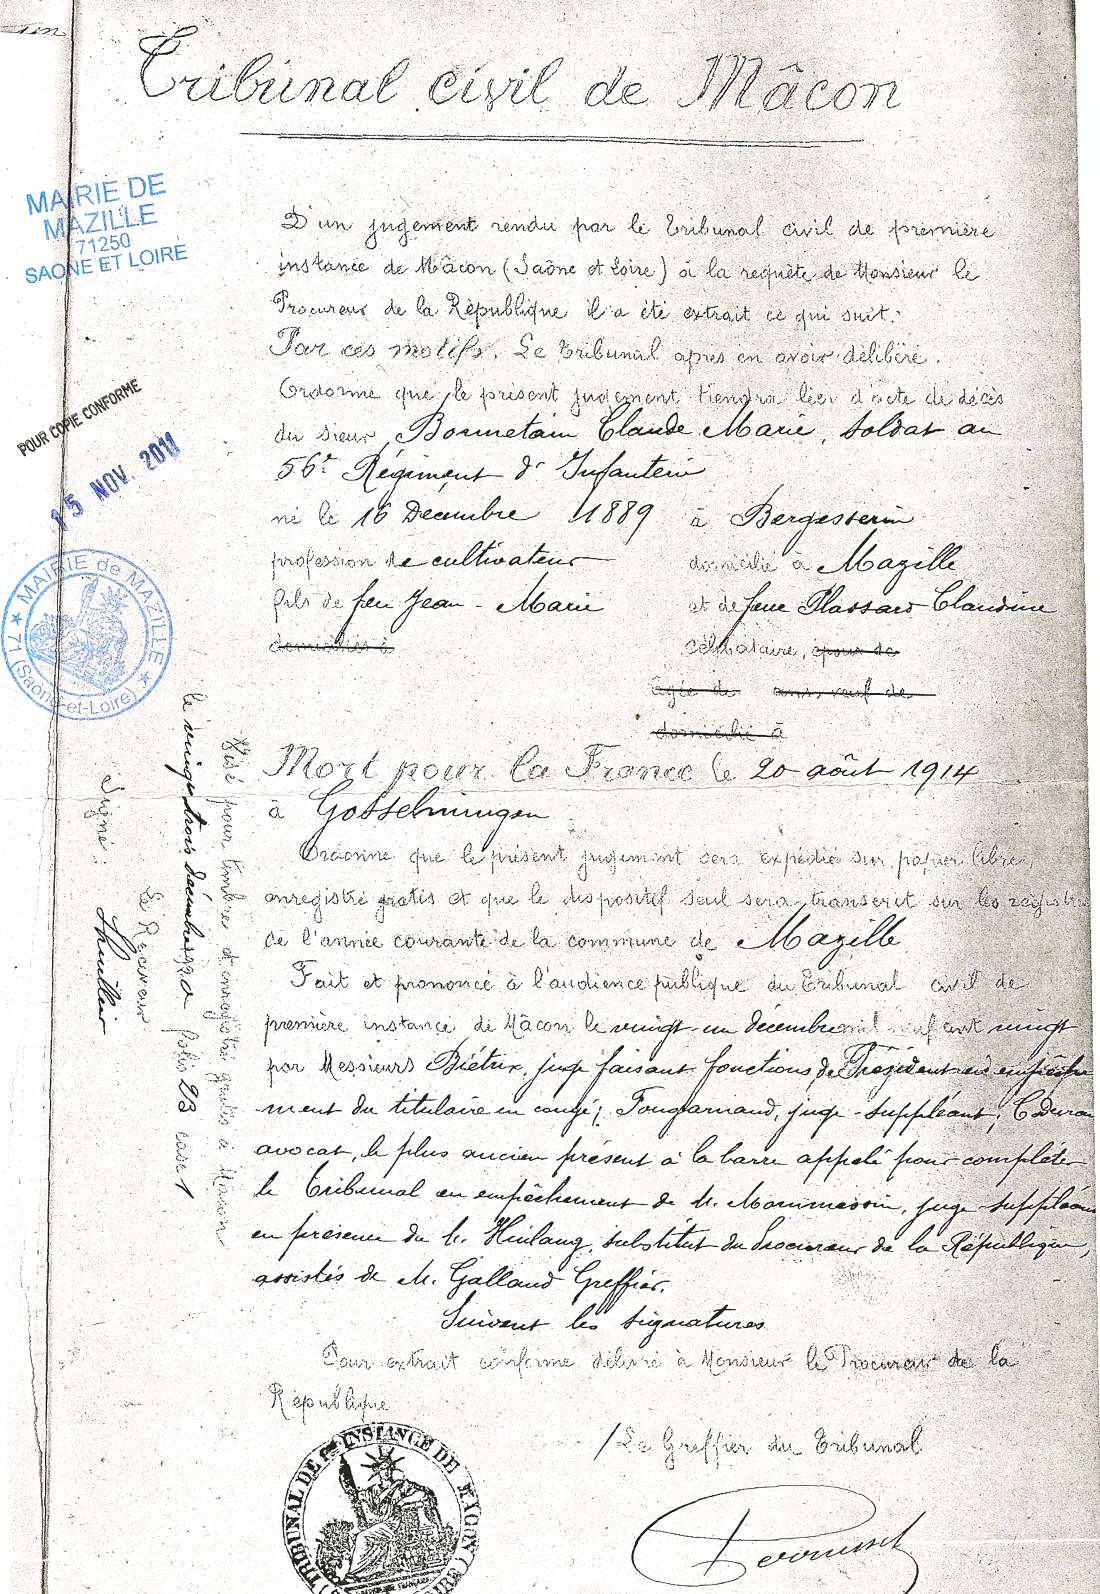 Tribunal civil de Mâcon
MAIRIE DE
MAZILLE
71250
SAONE ET LOIRE
POUR COPIE CONFORME
15 NOV. 2011
MAIRIE de MAZILLE
71 (Saône-et-Loire)
D'un jugement rendu par le Tribunal civil de première
instance de Mâcon (Saône et Loire) à la requête de Monsieur le
Procureur de la République il a été extrait ce qui suit.
Par ces motifs. Le Tribunal après en avoir délibéré.
Ordonne que le présent jugement tiendra lieu d'acte de décès
du sieur Bonnetain Claude Marie, soldat au
56e Régiment d'Infanterie
né le 16 Décembre 1889 à Bergesserin
profession de cultivateur domicilié à Mazille
fils de feu Jean-Marie et de feue Plassard Claudine
domiciliés à célibataire, époux de
âgée de ans, veuf de
domicilié à
Mort pour la France le 20 août 1914
à Gosselmingen
Ordonne que le présent jugement sera expédié sur papier libre,
enregistré gratis et que le dispositif seul sera transcrit sur les registres
de l'année courante de la commune de Mazille
Fait et prononcé à l'audience publique du Tribunal civil de
première instance de Mâcon le vingt-un décembre mil neuf cent vingt
par Messieurs Biétrix, juge faisant fonctions de Président en empêche
ment du titulaire en congé; juge-suppléant;
avocat, le plus ancien présent à la barre appelé pour compléter
le Tribunal en empêchement de M. Mommessin, juge-suppléant
en présence de M. substitut du Procureur de la République,
assistés de M. Galland Greffier.
Suivent les signatures
Pour extrait conforme délivré à Monsieur le Procureur de la
République
/Le Greffier du Tribunal
TRIBUNAL DE 1re INSTANCE DE MACON
Visé pour timbre et enregistré gratis à Macon
le vingt trois décembre 1920 folio 23 case 1
Le Receveur
Signé: Lhuillier